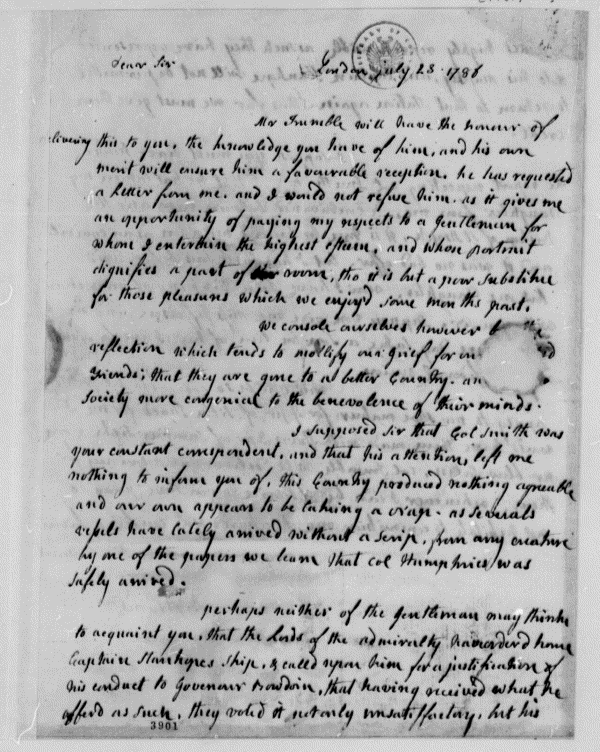 Dear Sir
London July 23 1786
Mr Trumble will have the honour of
delivering this to you, the knowledge you have of him, and his own
merit will ensure him a favourable reception. he has requested
a Letter from me. and I would not refuse him. as it gives me
an opportunity of paying my respects to a Gentleman for
whom I entertain the highest esteem, and whose portrait
dignifies a part of room, tho it is but a poor substitue
for those pleasures which we enjoy'd some months past.
we console ourselves however
reflection which tends to mollify our grief for
Friends; that they are gone to a better Country. an
Society more congenial to the benevolence of their minds.
I supposed sir that Col Smith was
your constant correspondent, and that his attention, left me
nothing to inform you of, this Country produced nothing agreeable
and our own appears to be taking a Nap. as severals
vessels have lately arrived without a scrip, from any creature
by one of the papers we learn that Col Humphries was
safely arrived.
perhaps neither of the Gentleman may think
to acquaint you, that the Lords of the admiralty have orderd home
Captain Stanhopes Ship, & called upon him for a justification of
his conduct to Govenour Bowdoin, that having received what he
offerd as such, they voted it not only unsatisfactory, but his
3901